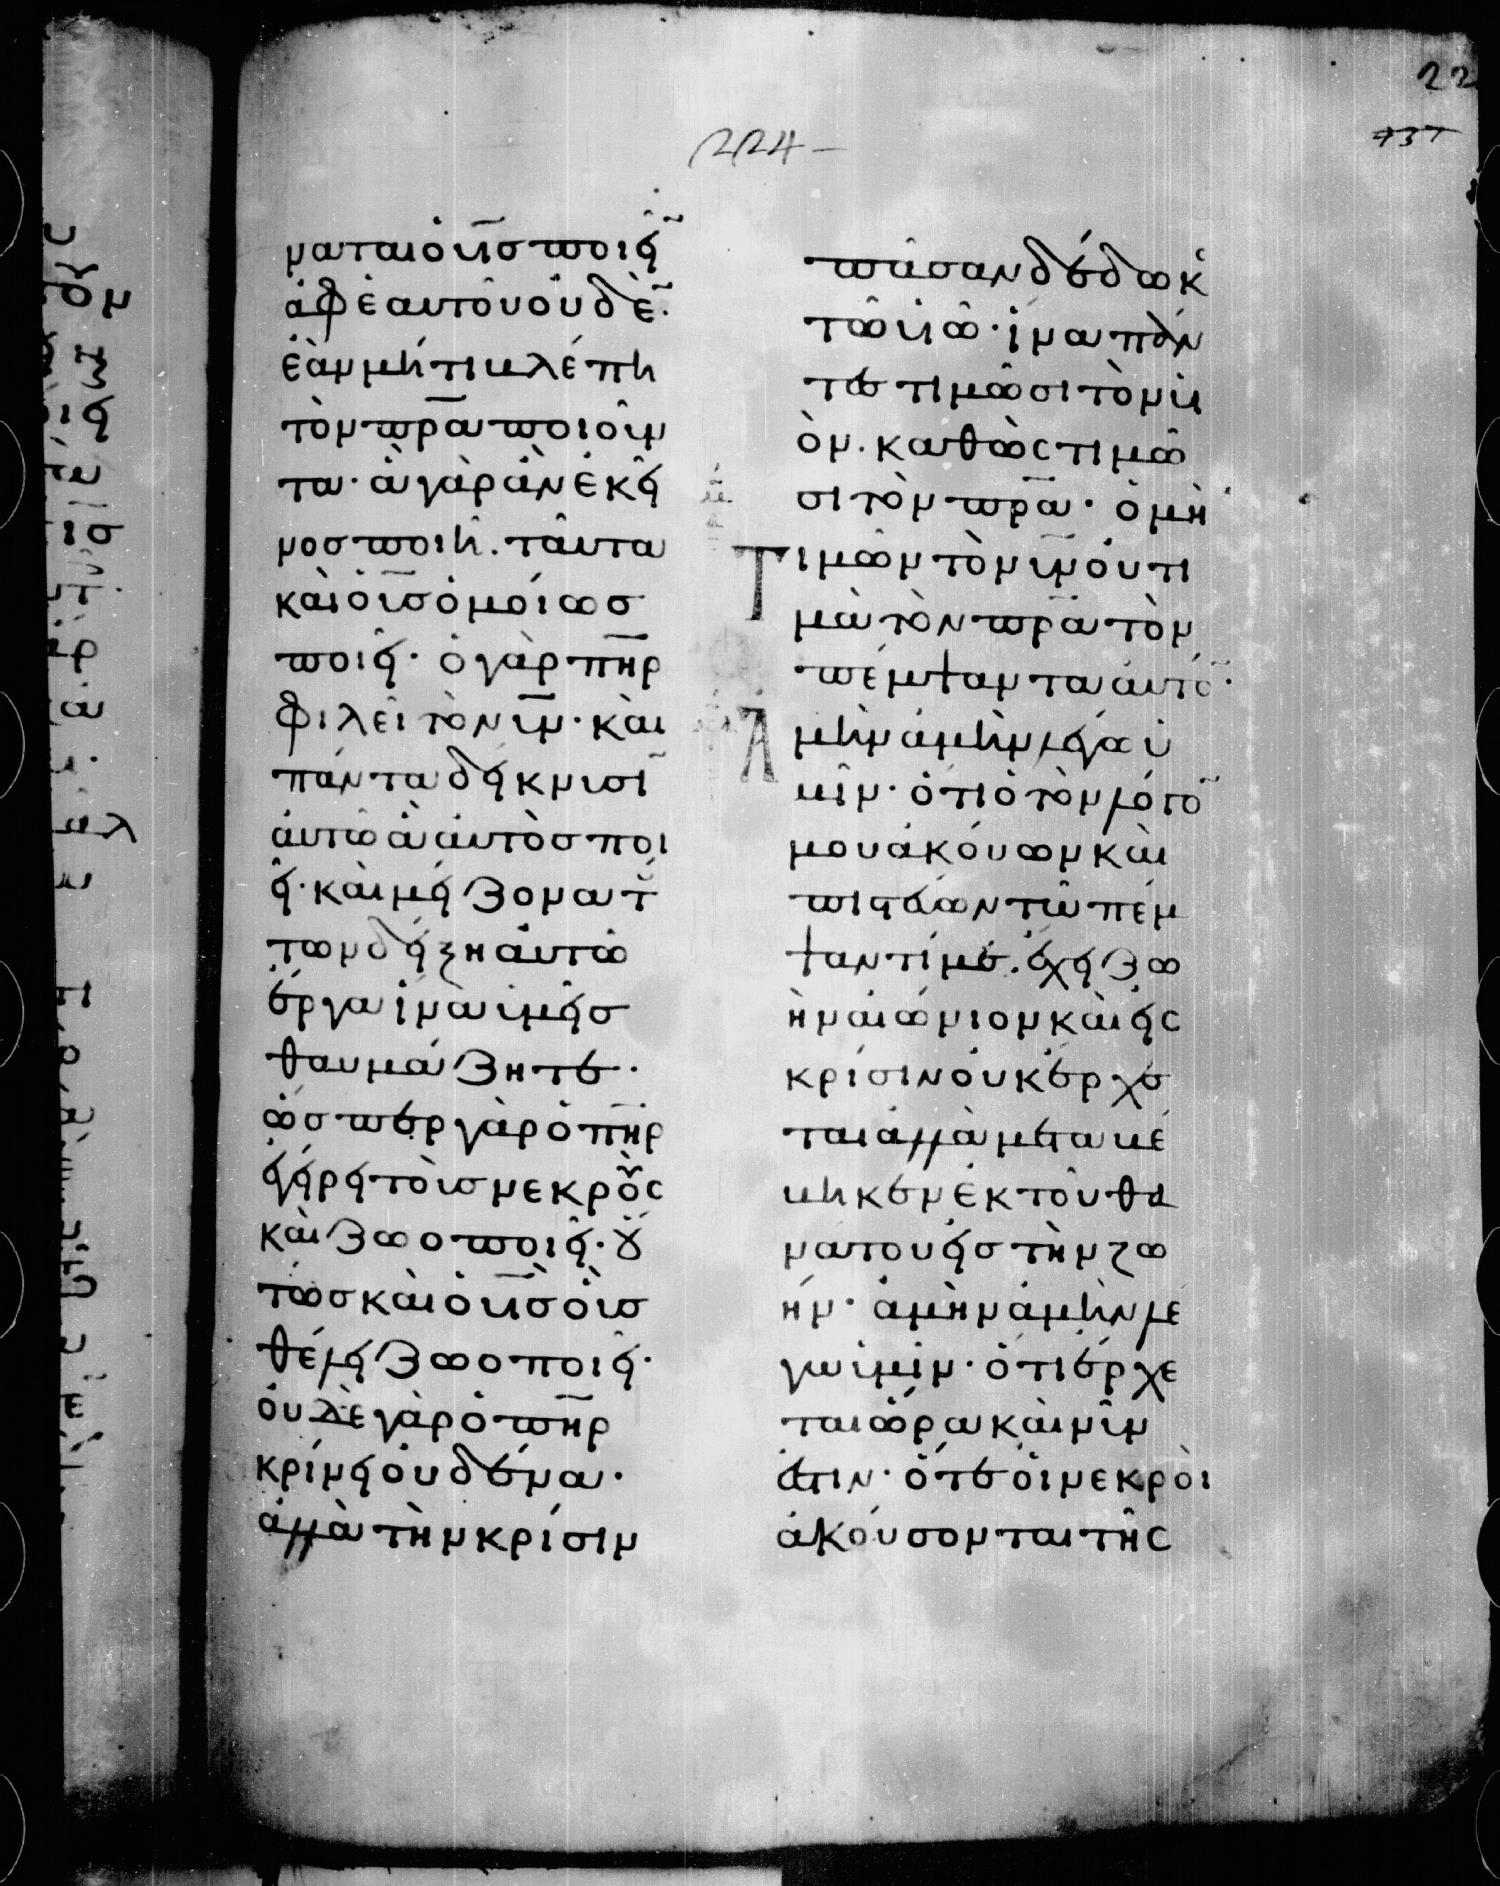 22
737
224
ναται ὁ υ̅ς̅ ποιεῖν
ἀφ' ἑαυτοῦ οὐδὲν·
ἐὰν μή τι βλέπη
τὸν π̅ρ̅α̅ ποιοῦν
τα· ἃ γὰρ ἂν ἐκεῖ
νος ποιῆ· ταῦτα
καὶ ὁ υ̅ς̅ ὁμοίως
ποιεῖ· ὁ γὰρ π̅η̅ρ̅
φιλεῖ τὸν υ̅ν̅· καὶ
πάντα δείκνυσιν
αὐτῶ ἃ αὐτὸς ποι
εῖ· καὶ μείζονα τού
των δείξη αὐτῶ
ἔργα ἵνα ὑμεῖς
θαυμάζητε·
ὥσπερ γὰρ ὁ π̅η̅ρ̅
ἐγείρει τοὺς νεκροὺς
καὶ ζωοποιεῖ· οὕ
τως καὶ ὁ υ̅ς̅ οὓς
θέλει ζωοποιεῖ·
οὐδὲ γὰρ ὁ π̅η̅ρ̅
κρίνει οὐδένα·
ἀλλὰ τὴν κρίσιν
πᾶσαν δέδωκε
τῶ υ̅ῶ̅· ἵνα πάν
τες τιμῶσι τὸν υἱ
ὸν· καθὼς τιμῶ
σι τὸν π̅ρ̅α̅· ὁ μὴ
τιμῶν τὸν υ̅ν̅ οὐ τι
μᾶ τὸν π̅ρ̅α̅ τὸν
πέμψαντα αὐτόν·
Ἀμὴν ἀμὴν λέγω ὑ
μῖν· ὅτι ὁ τὸν λόγον
μου ἀκούων καὶ
πιστεύων τῶ πέμ
ψαντί με· ἔχει ζω
ὴν αἰώνιον καὶ εἰς
κρίσιν οὐκ ἔρχε
ται ἀλλὰ μεταβέ
βηκεν ἐκ τοῦ θα
νάτου εἰς τὴν ζω
ήν· ἀμὴν ἀμὴν λέ
γω ὑμῖν· ὅτι ἔρχε
ται ὥρα καὶ νῦν
ἐστιν· ὅτε οἱ νεκροὶ
ἀκούσονται τῆς